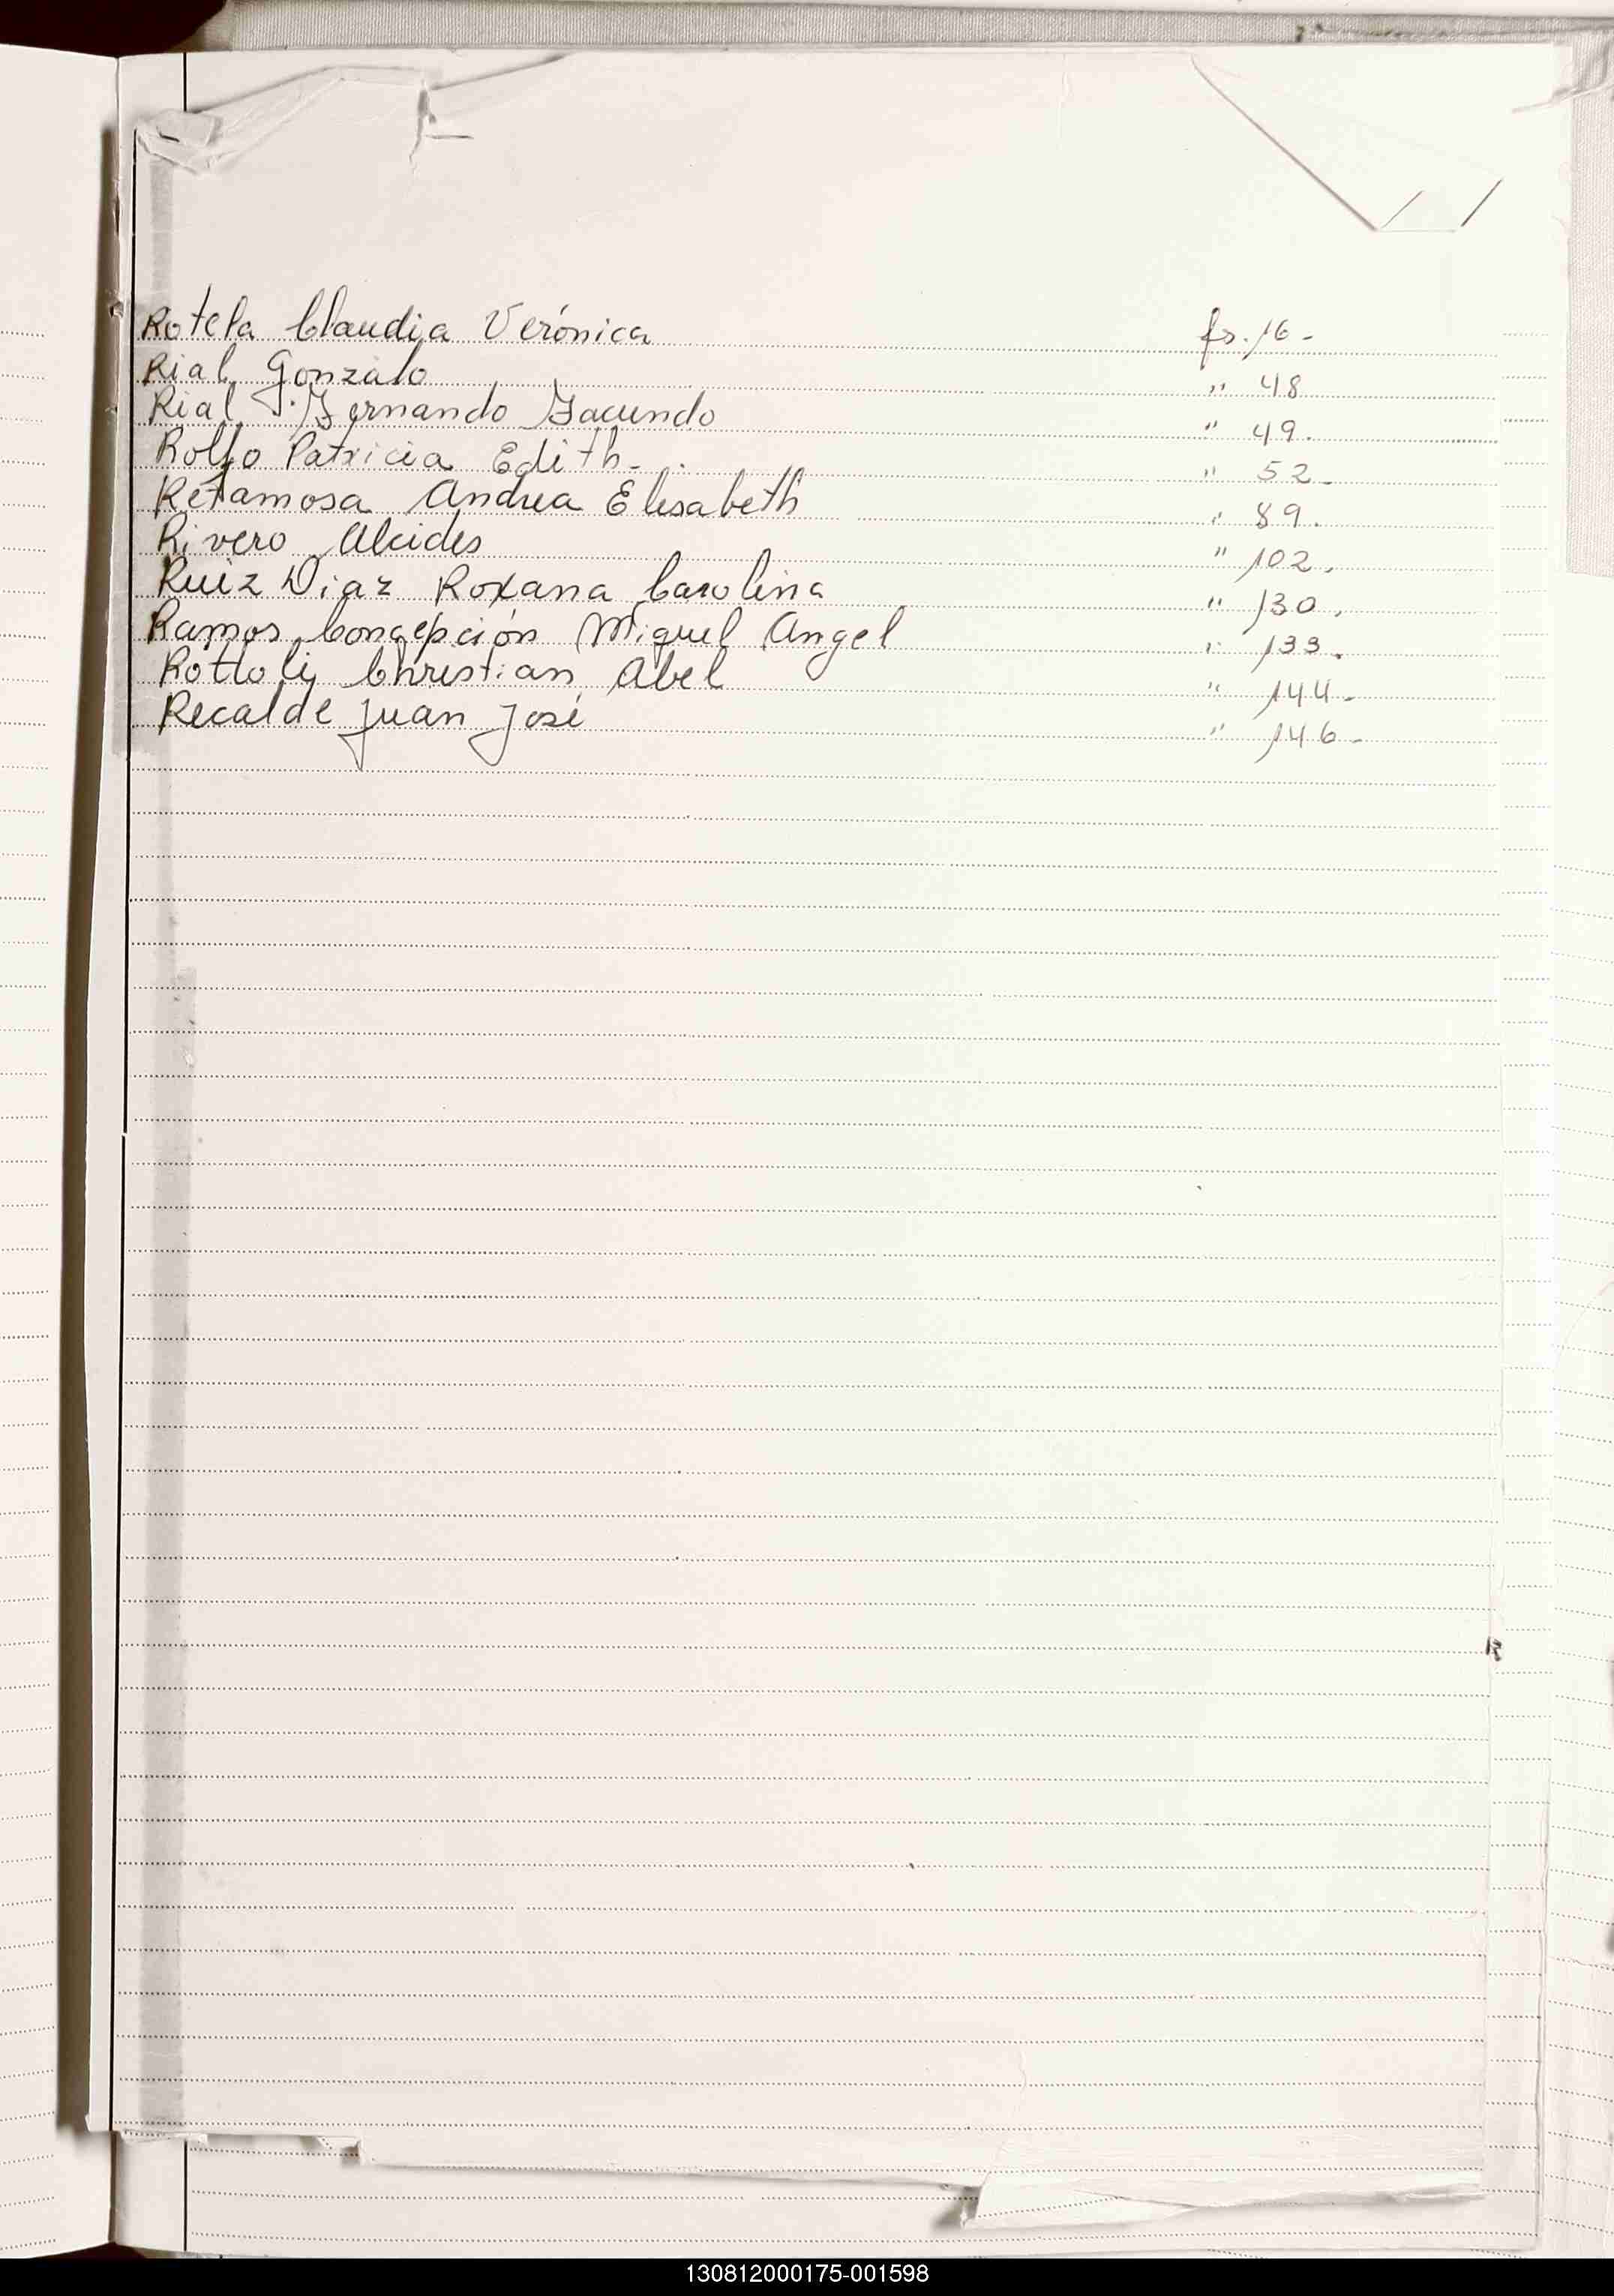 Rotela Claudia Verónica fs. 16 -
Rial, Gonzalo " 48
Rial, Fernando Facundo " 49.
Rolfo Patricia Edith - " 52 -
Retamosa Andrea Elisabeth " 89.
Rivero Alcides " 102.
Ruiz Diaz Roxana Carolina " 130.
Ramos Concepción Miguel Angel " 133.
Rottoly Christian Abel " 144 -
Recalde Juan José " 146 -
R
130812000175-001598